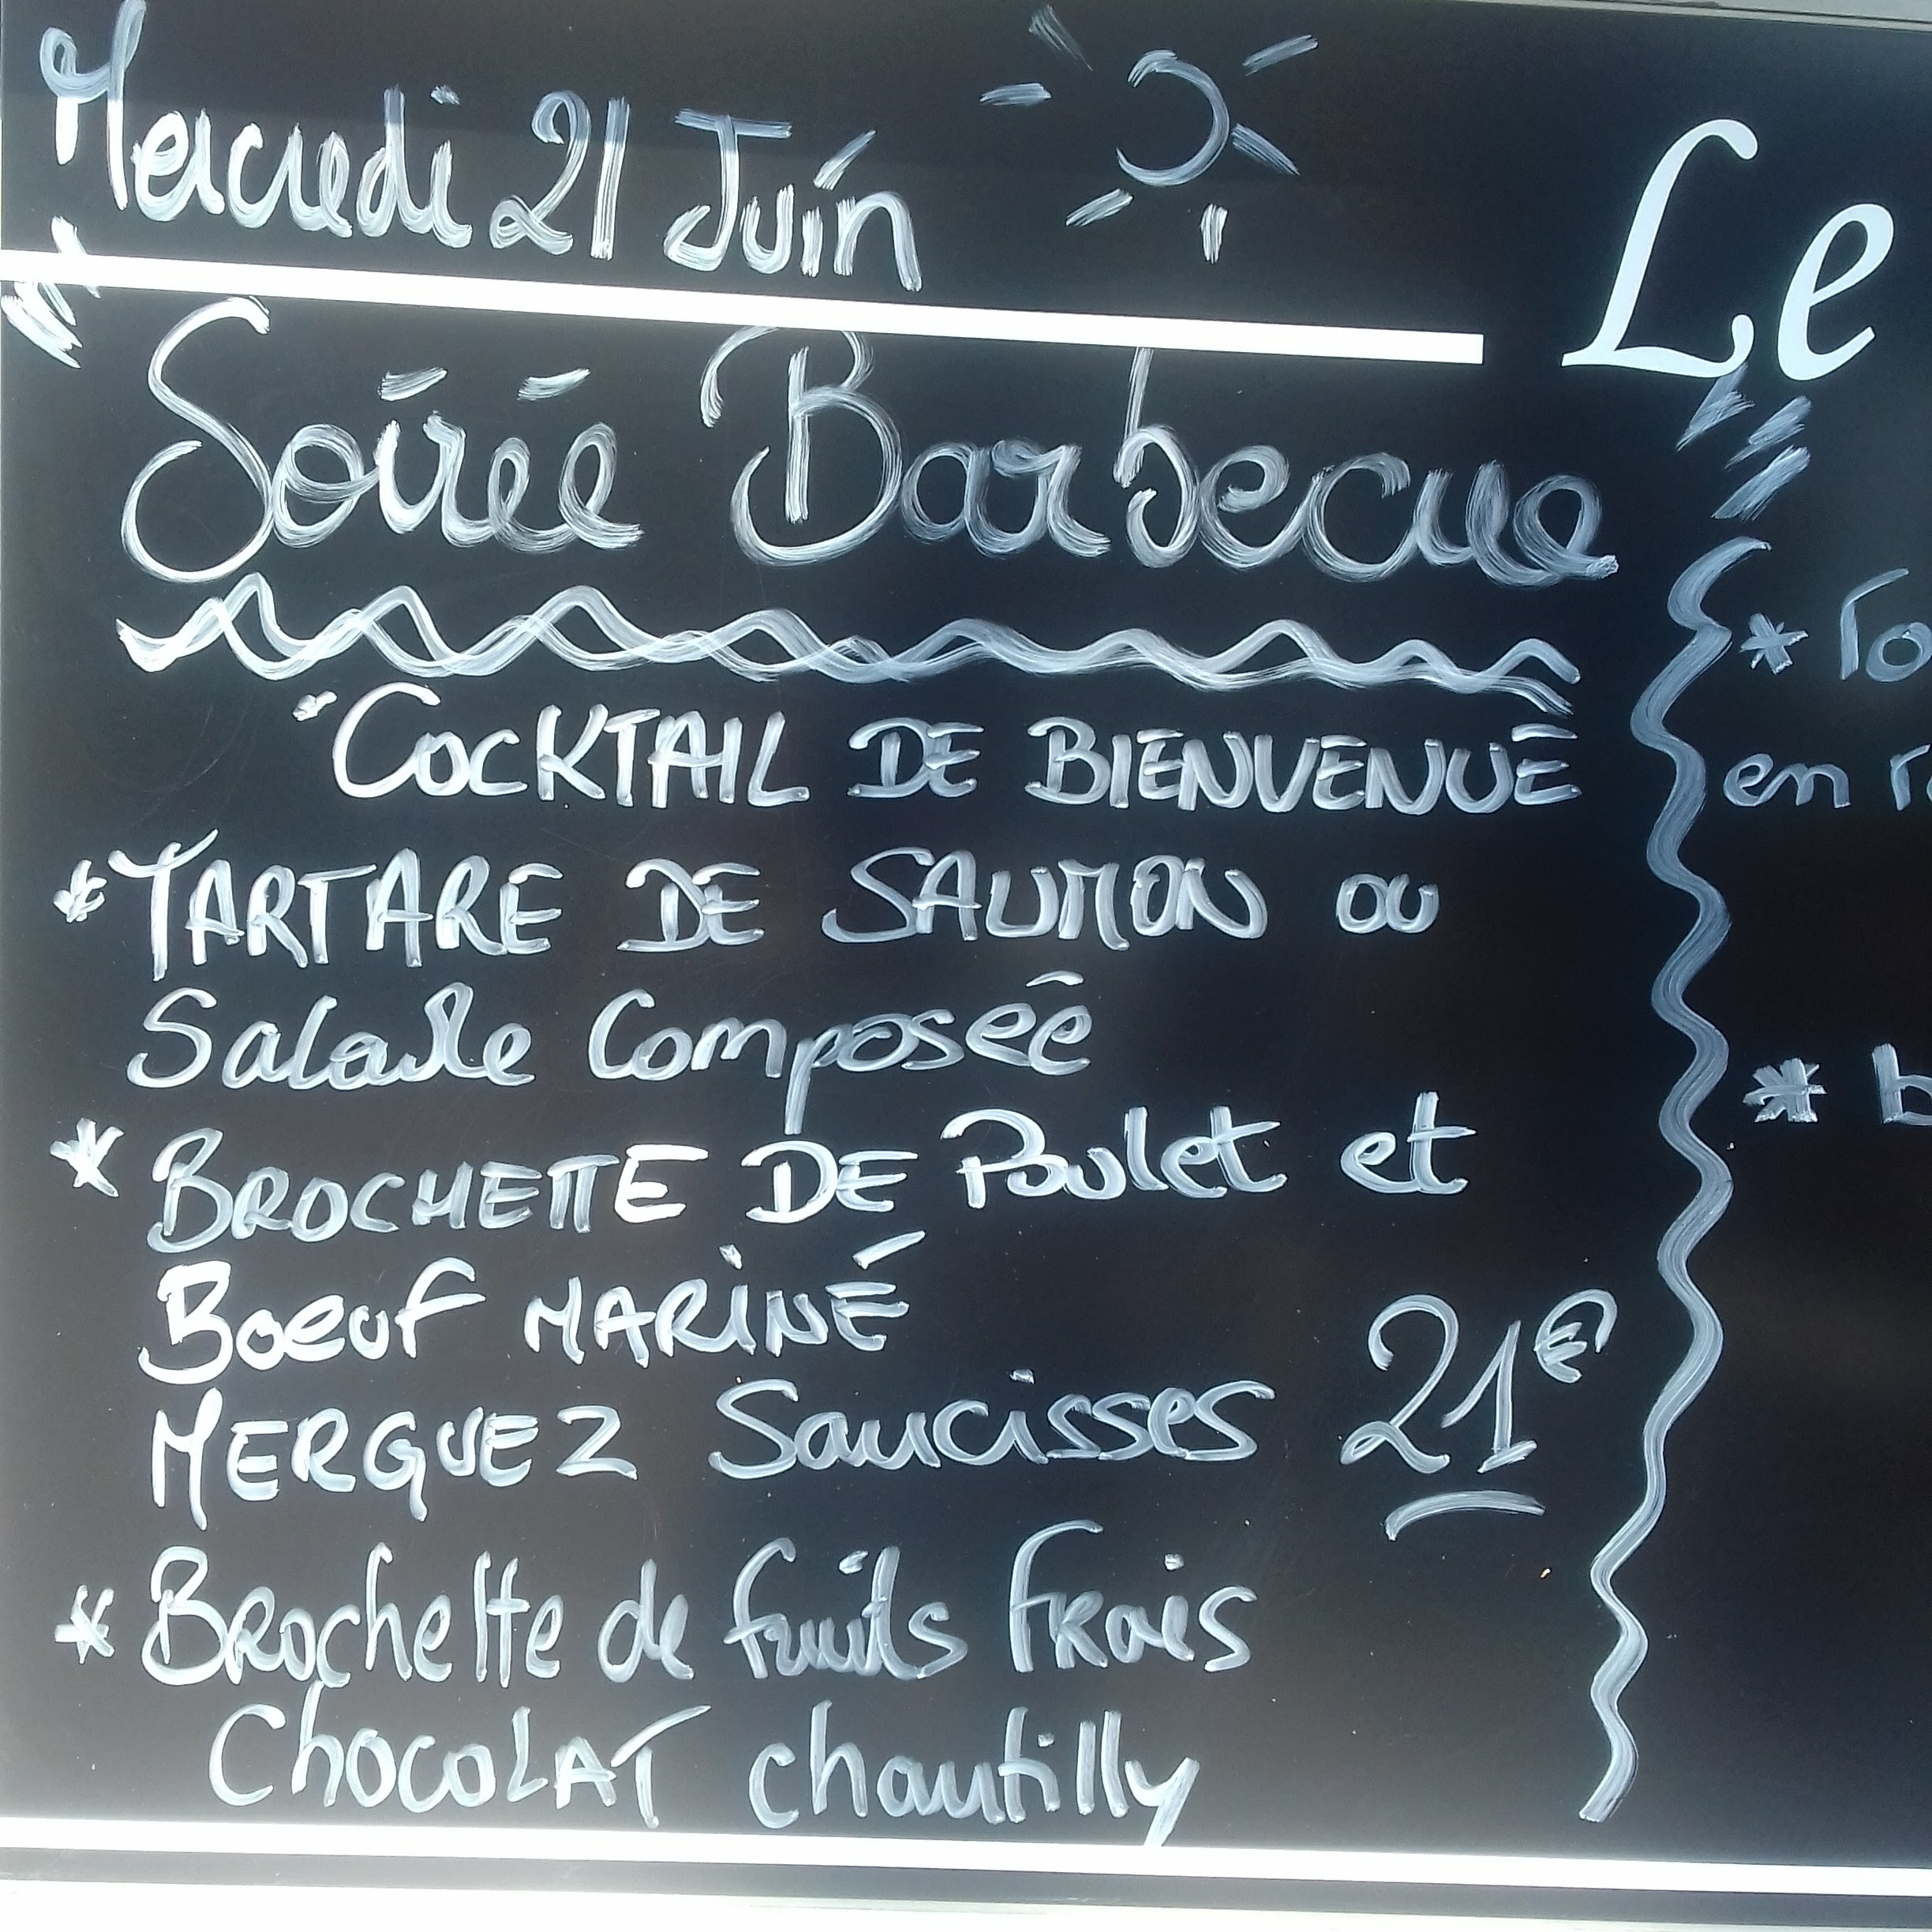 Mercredi 21 Juin
Le
Soirée Barbecue
COCKTAIL DE BIENVENUE
* TARTARE DE SAUMON OU
Salade Composée
* BROCHETTE DE Poulet et
Boeuf MARINÉ
MERGUEZ Saucisses 21€
* Brochette de fruits Frais
CHOCOLAT chantilly
en